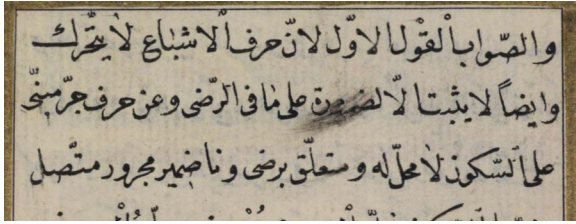 والصّواب ٱلقول الاوّل لانّ حرف ٱلاشباع لا يتحّرك
وايضاً لا يثبت الّا لضرورة على ما فى الرّضى وعن حرف جرّ مبنىّ
على ٱلسّكون لا محلّ له ومتعلّق برضى ونا ضمير مجرور متّصل